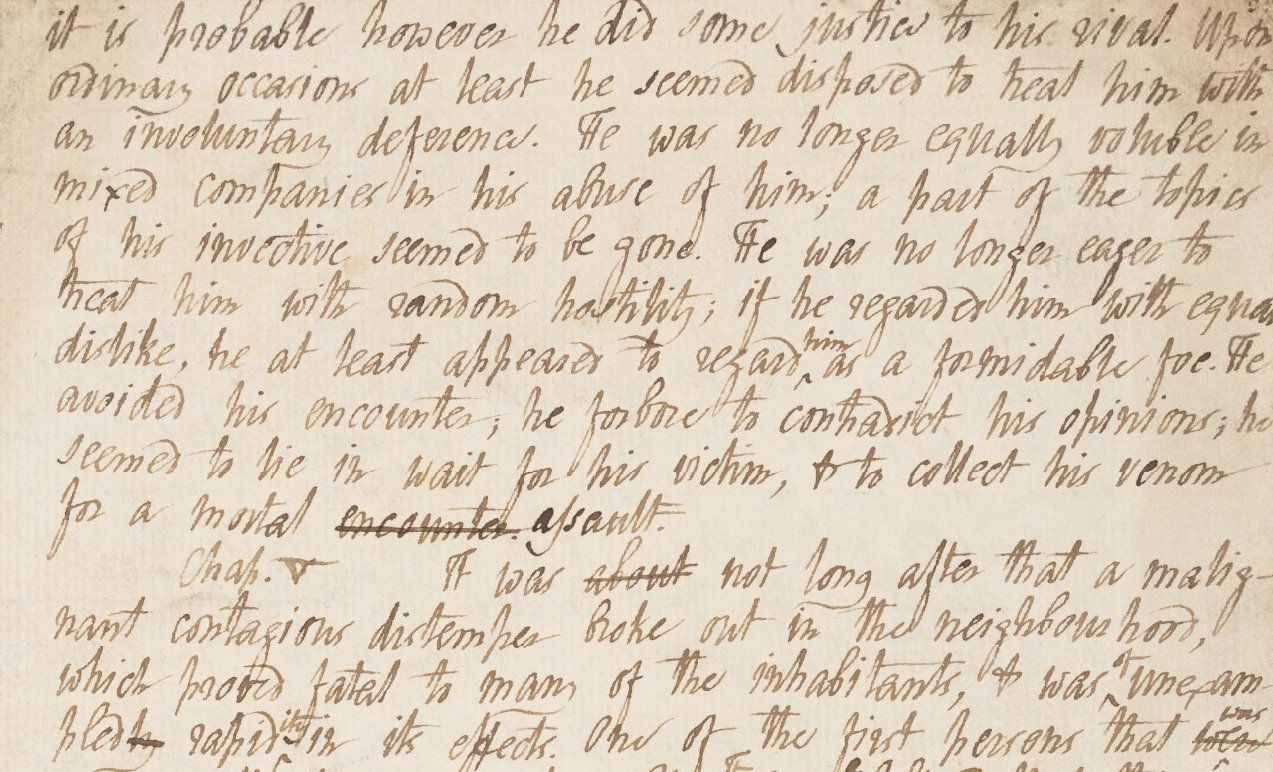 it is probable however he did some justice to his rival. Upon
ordinary occasions at least he seemed disposed to treat him with
an involuntary deference. He was no longer equally voluble in
mixed companies in his abuse of him; a part of the topics
of his invective seemed to be gone. He was no longer eager to
treat him with random hostility; if he regarded him with equal
dislike, he at least appeared to regard him as a formidable foe. He
avoided his encounter; he forbore to contradict his opinions; he
seemed to lie in wait for his victim, & to collect his venom
for a mortal encounter. assault.
Chap. V It was about not long after that a malig-
nant contagious distemper broke out in the neighbourhood,
which proved fatal to many of the inhabitants, & was of unexam-
pledly rapidity in its effects. One of the first persons that were was